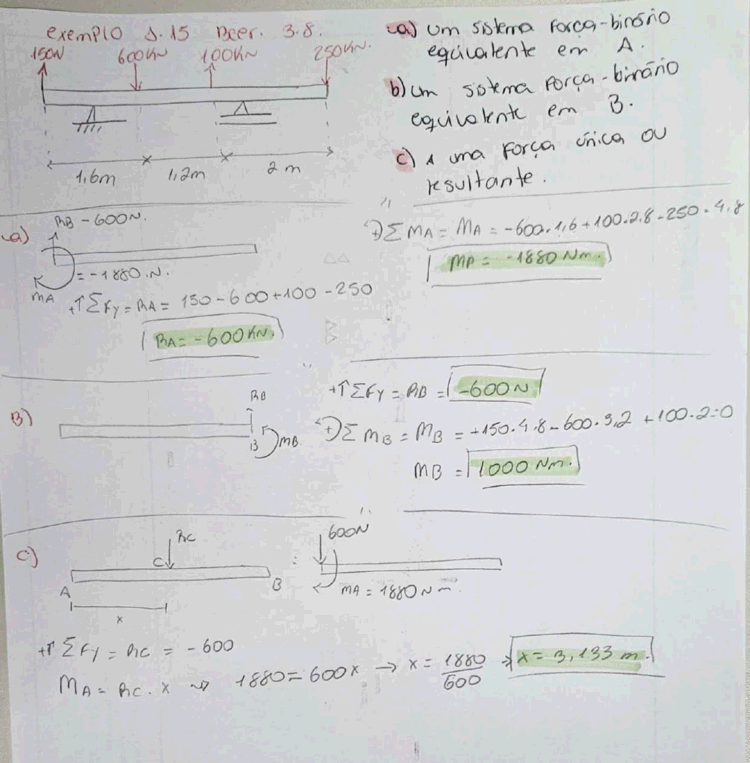 exemplo 3.15 Beer. 3.8.
150N 600KN 100KN 250KN.
1,6m 1,2m 2 m
a) um sistema força-binário
equivalente em A.
b) um sistema força-binário
equivalente em B.
c) a uma força única ou
resultante.
a)
RB -600N.
= -1880.N.
MA
+↑ΣFy = RA = 150-600+100-250
RA= -600KN.
+)ΣMA = MA = -600.1,6+100.2,8-250.4,8
MA = -1880 Nm.
B)
RB
B MB
+↑ΣFy = RB = -600N
+)ΣMB = MB = +150.4,8-600.3,2 +100.2=0
MB = 1000 Nm.
C)
RC
C
A B
x
600N
MA = 1880 N m.
+↑ΣFy = RC = -600
MA = RC.x → 1880 = 600x → x = 1880/600 → x = 3,133 m.